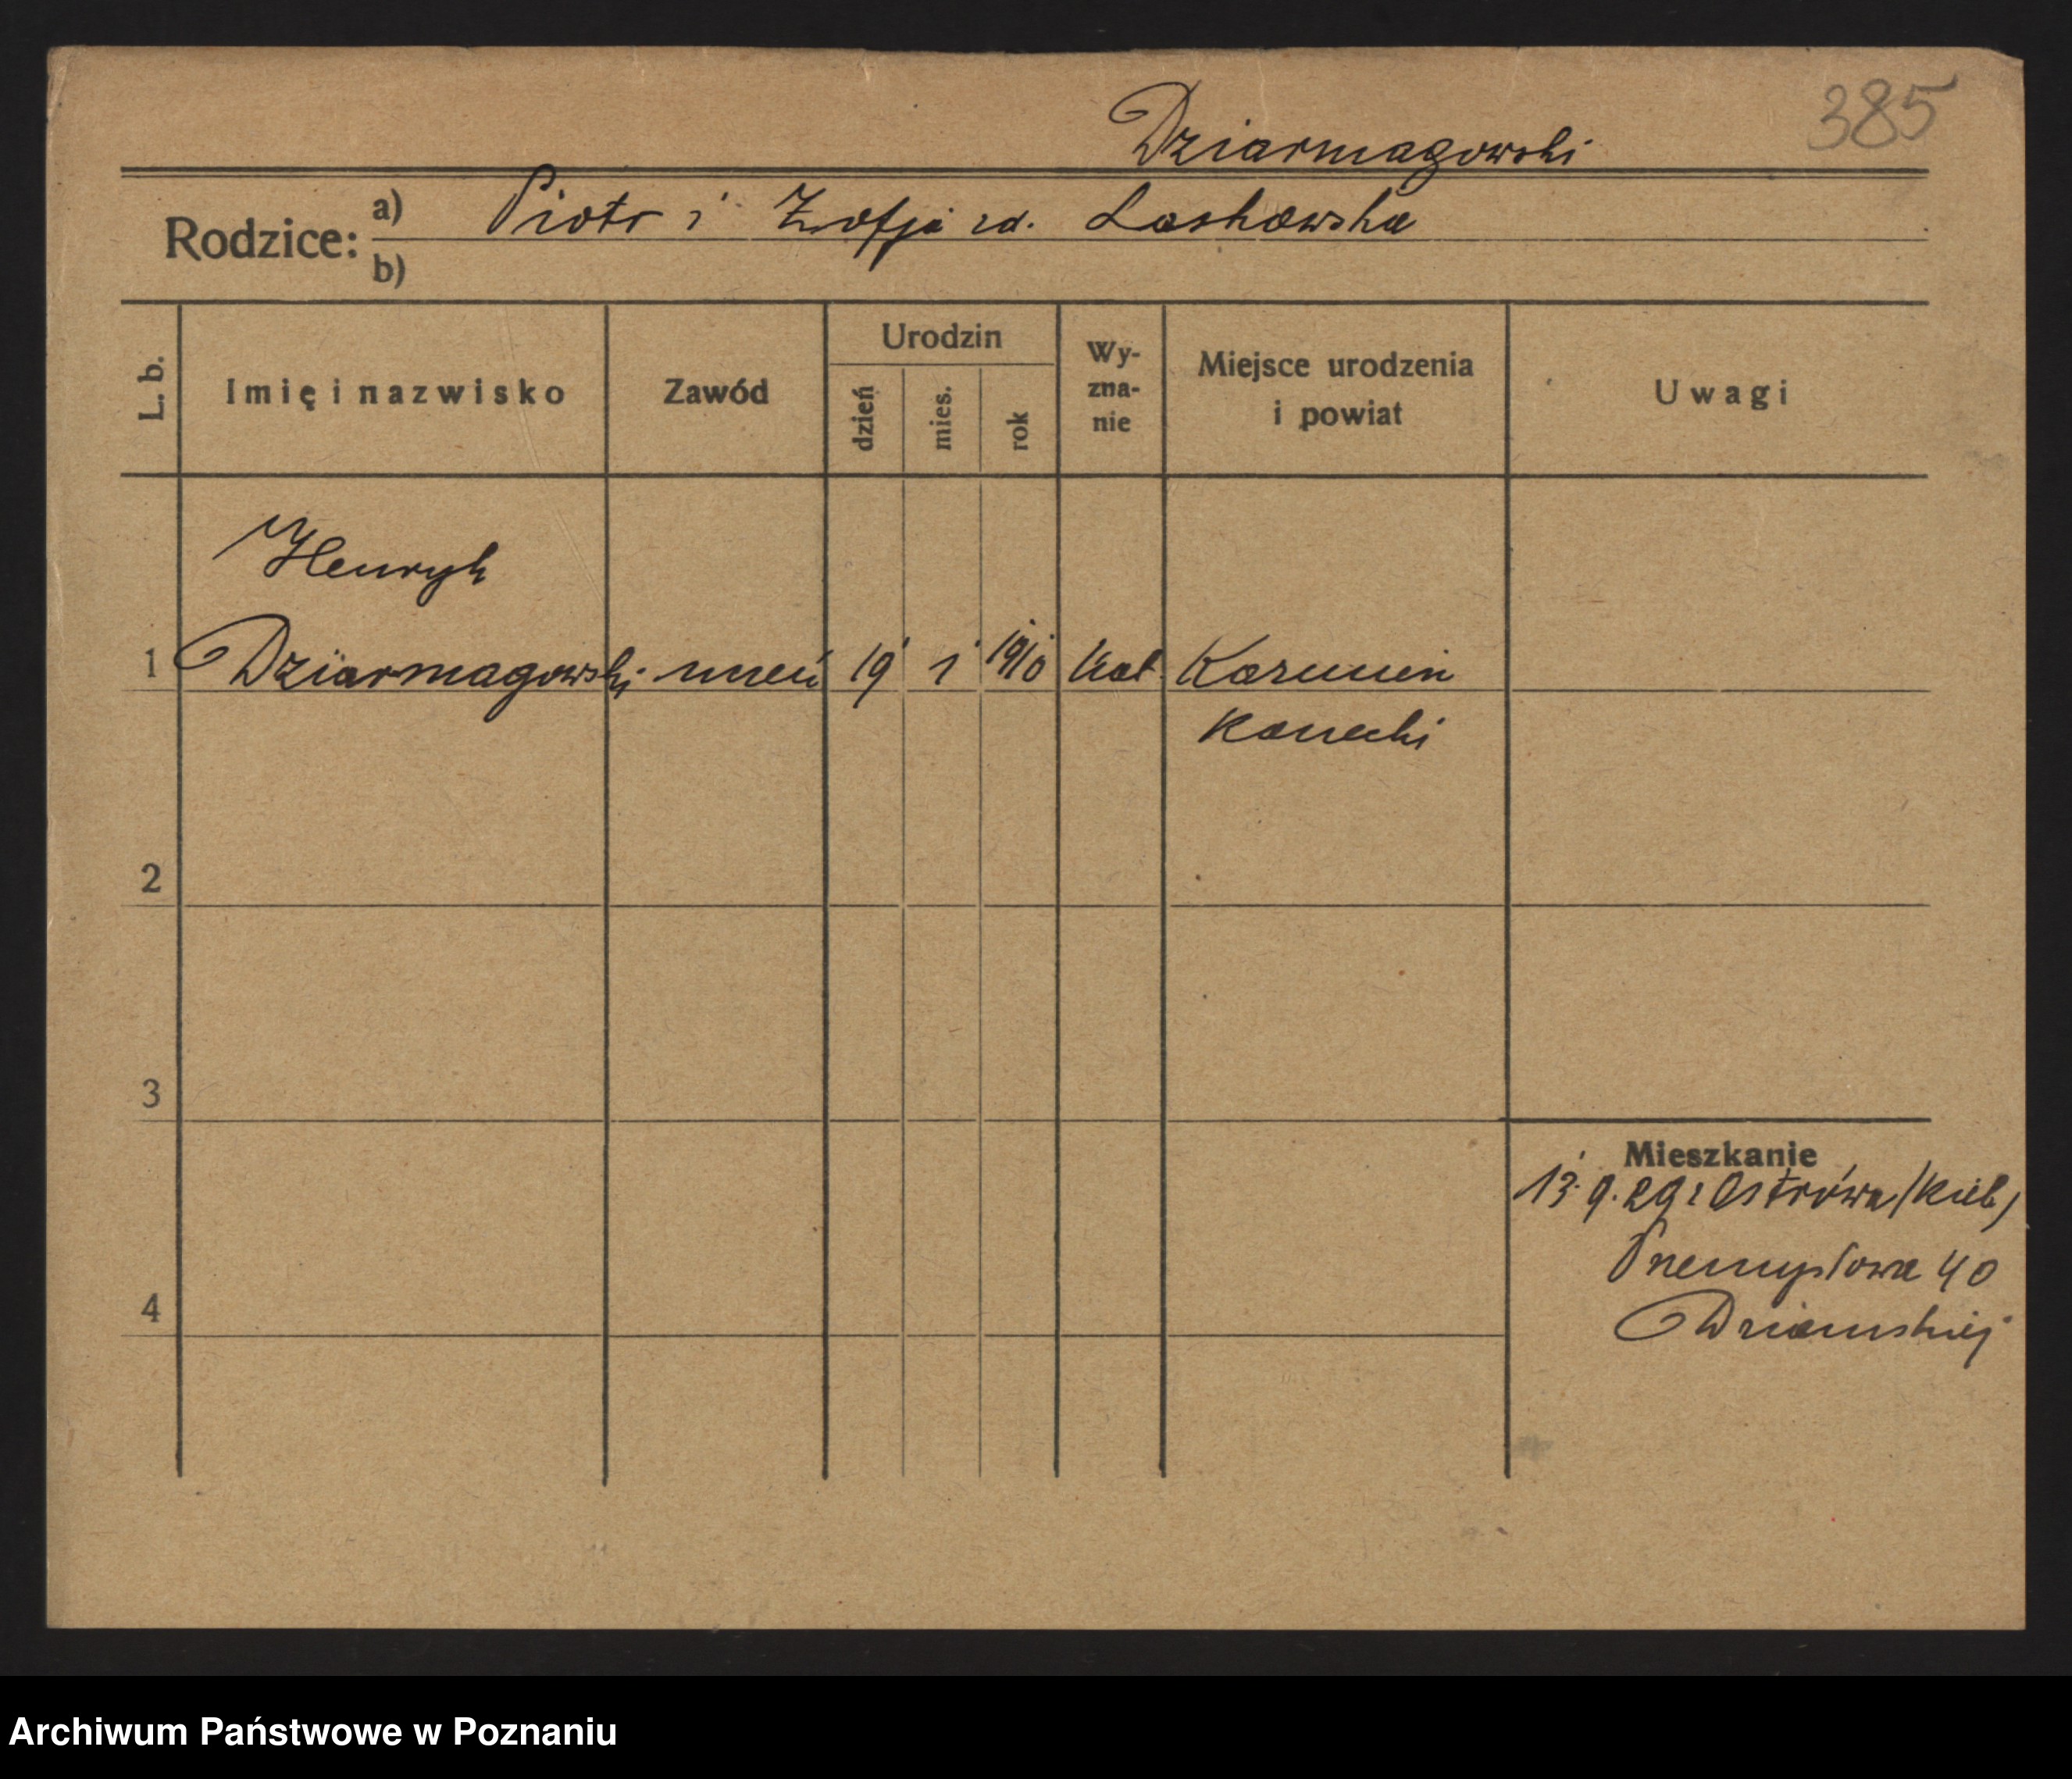 385
Dziarmagowski
Rodzice: a) Piotr i Zofja zd. Laskowska
b)
L. b. Imię i nazwisko Zawód Urodzin dzień mies. rok Wy-zna-nie Miejsce urodzenia i powiat Uwagi
Henryk
1 Dziarmagowski uczeń 19 1 1910 kat
Konecki
2
3
Mieszkanie
13. 9. 29 z Ostrówa (Kiel)
Przemysłowa 40
4 Dziamskiej
Archiwum Państwowe w Poznaniu